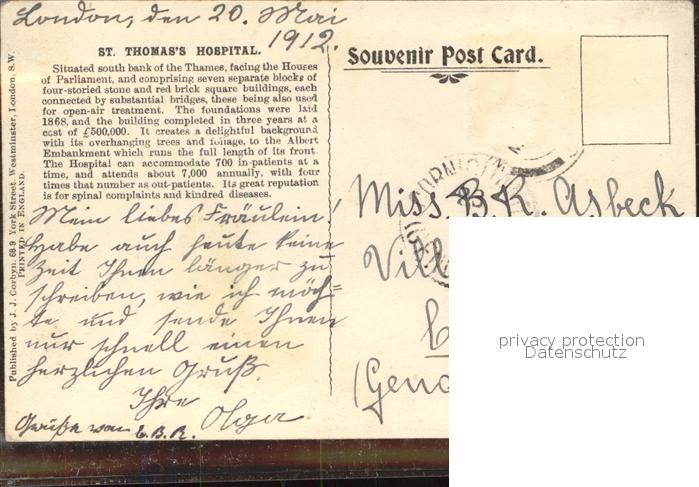 London, den 20. Mai
1912.
ST. THOMAS'S HOSPITAL.
Situated south bank of the Thames, facing the Houses
of Parliament, and comprising seven separate blocks of
four-storied stone and red brick square buildings, each
connected by substantial bridges, these being also used
for open-air treatment. The foundations were laid
1868, and the building completed in three years at a
cost of £500,000. It creates a delightful background
with its overhanging trees and foliage, to the Albert
Embankment which runs the full length of its front.
The Hospital can accommodate 700 in-patients at a
time, and attends about 7,000 annually, with four
times that number as out-patients. Its great reputation
is for spinal complaints and kindred diseases.
Mein liebes Fräulein!
Habe auch heute keine
Zeit Ihnen länger zu
schreiben, wie ich möch=
te und sende Ihnen
nur schnell einen
herzlichen Gruß.
Ihre
Olga
Grüße von E.B.R.
Published by J. J. Corbyn, 68.9 York Street, Westminster, London, S.W.
PRINTED IN ENGLAND.
Souvenir Post Card.
Miss B. R. Asbeck
Vill
(Geno
privacy protection
Datenschutz